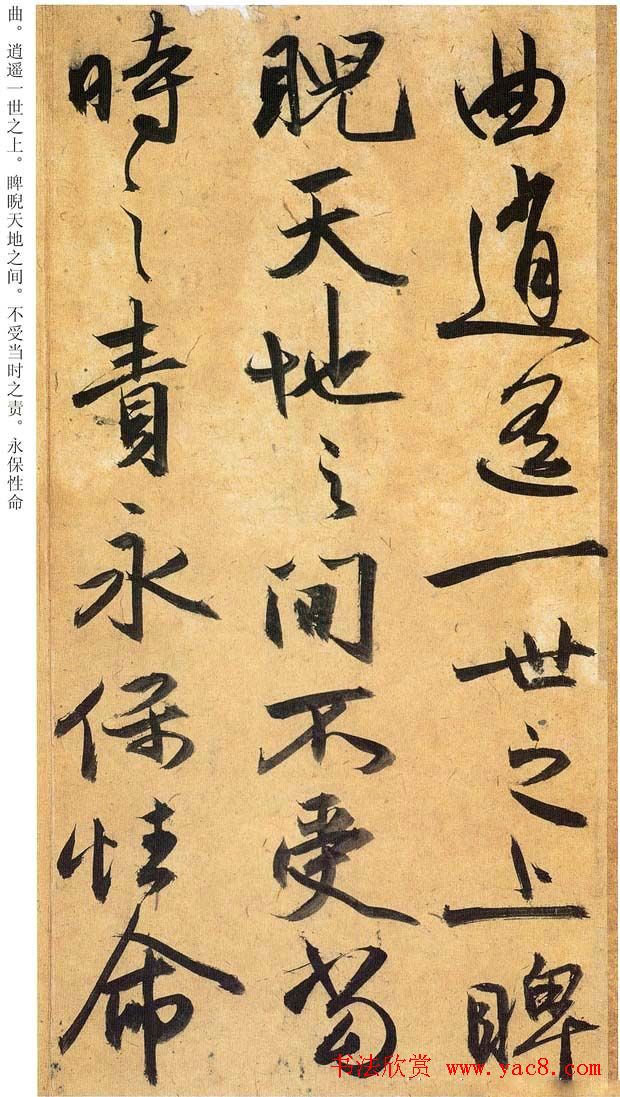 曲逍遥一世之上睥
睨天地之间不受当
時之責永保性命
曲。逍遥一世之上。睥睨天地之间。不受当时之责。永保性命
书法欣赏 www.yac8.com